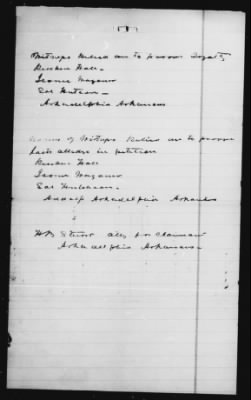 Witness Relied on to prove Loyalty
Reuben Hall
Isome Wagoner
Sol Hutson
Arkadelphia Arkansas
Names of Witness Relied on to prove
facts alledge in petition
Reuben Hall
Isome Wagoner
Sol
Address Arkadelphia Arkansas
Atty for Claimant
Arkadelphia Arkansas